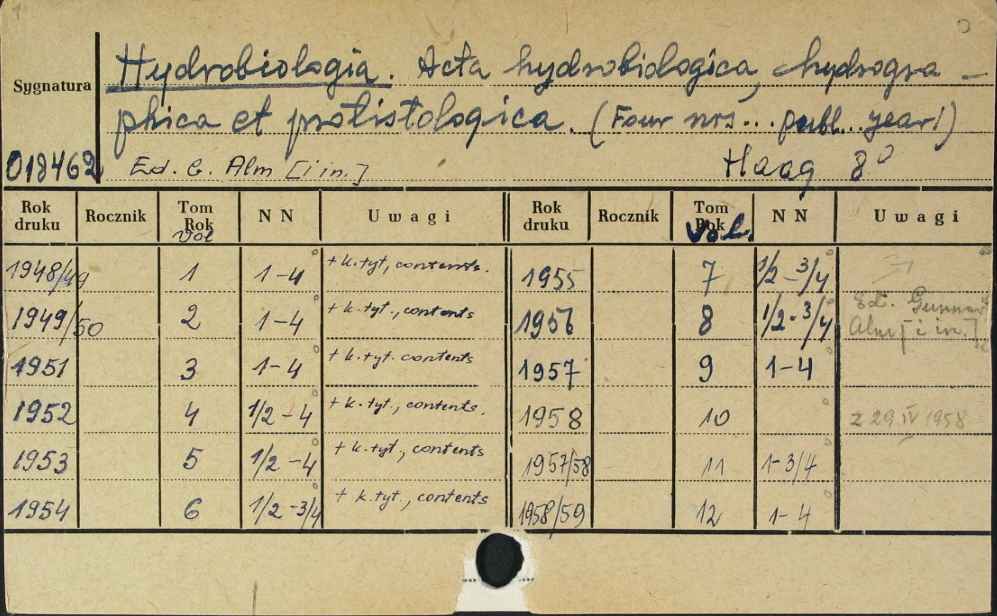 Hydrobiologia. Acta hydrobiologica, hydrogra-
Sygnatura
phica et protistologica. (Four nrs... publ... year!)
018462 Ed. G. Alm [i in.] Haag 8°
Rok druku Rocznik Tom Rok vol NN Uwagi Rok druku Rocznik Tom Rok vol. NN Uwagi
1948/49 1 1-4 + k.tyt, contents. 1955 7 1/2-3/4
1949/50 2 1-4 + k.tyt., contents 1956 8 1/2-3/4 Ed. Gunnar
Alm [i in.]
1951 3 1-4 + k.tyt. contents 1957 9 1-4
1952 4 1/2-4 + k.tyt., contents. 1958 10 z 29 IV 1958
1953 5 1/2-4 + k.tyt., contents 1957/58 11 1-3/4
1954 6 1/2-3/4 + k.tyt., contents 1958/59 12 1-4